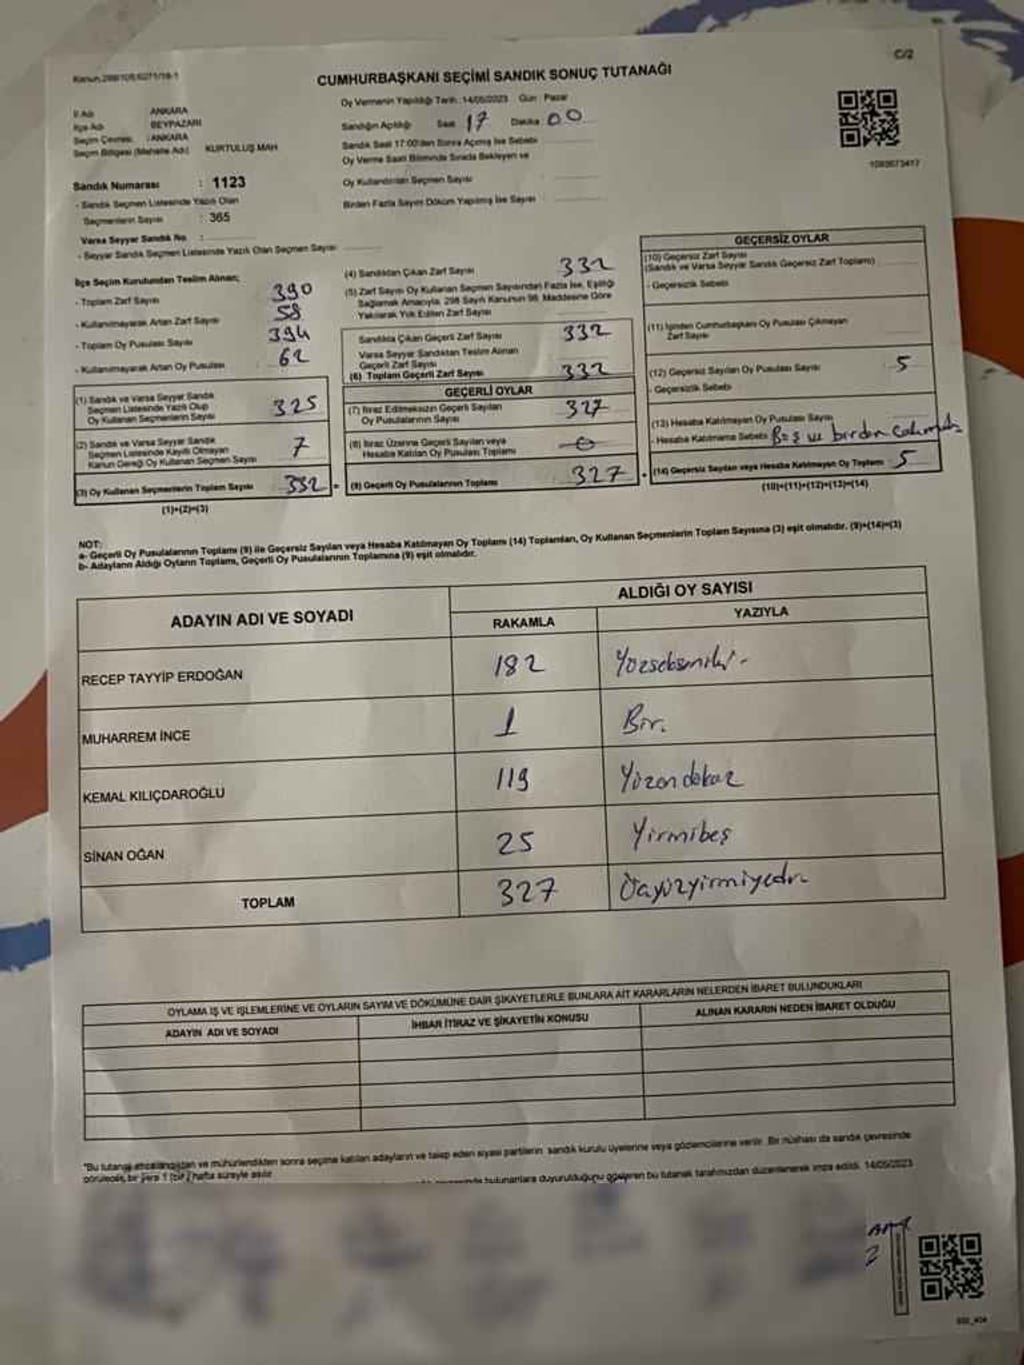 C/2
CUMHURBAŞKANI SEÇİMİ SANDIK SONUÇ TUTANAĞI
İl Adı ANKARA
İlçe Adı BEYPAZARI
Seçim Çevresi : ANKARA
Seçim Bölgesi (Mahalle Adı) KURTULUŞ MAH
Sandık Numarası : 1123
- Sandık Seçmen Listesinde Yazılı Olan
Seçmenlerin Sayısı : 365
Varsa Seyyar Sandık No :
- Seyyar Sandık Seçmen Listesinde Yazılı Olan Seçmen Sayısı
Oy Vermenin Yapıldığı Tarih : 14/05/2023 Gün : Pazar
Sandığın Açıldığı Saat 17 Dakika 00
Sandık Saat 17:00'den Sonra Açılmış İse Sebebi
Oy Verme Saati Bitiminde Sırada Bekleyen ve
Oy Kullandırılan Seçmen Sayısı
Birden Fazla Sayım Döküm Yapılmış İse Sayısı
1093673417
İlçe Seçim Kurulundan Teslim Alınan;
- Toplam Zarf Sayısı 390
- Kullanılmayarak Artan Zarf Sayısı 58
- Toplam Oy Pusulası Sayısı 394
- Kullanılmayarak Artan Oy Pusulası 62
(1) Sandık ve Varsa Seyyar Sandık
Seçmen Listesinde Yazılı Olup
Oy Kullanan Seçmenlerin Sayısı 325
(2) Sandık ve Varsa Seyyar Sandık
Seçmen Listesinde Kayıtlı Olmayan
Kanun Gereği Oy Kullanan Seçmen Sayısı 7
(3) Oy Kullanan Seçmenlerin Toplam Sayısı 332 =
(1)+(2)=(3)
(4) Sandıktan Çıkan Zarf Sayısı 332
(5) Zarf Sayısı Oy Kullanan Seçmen Sayısından Fazla İse, Eşitliği
Sağlamak Amacıyla, 298 Sayılı Kanunun 98. Maddesine Göre
Yakılarak Yok Edilen Zarf Sayısı
Sandıkta Çıkan Geçerli Zarf Sayısı 332
Varsa Seyyar Sandıktan Teslim Alınan
Geçerli Zarf Sayısı
(6) Toplam Geçerli Zarf Sayısı 332
GEÇERLİ OYLAR
(7) İtiraz Edilmeksizin Geçerli Sayılan
Oy Pusulalarının Sayısı 327
(8) İtiraz Üzerine Geçerli Sayılan veya
Hesaba Katılan Oy Pusulası Toplamı 0
(9) Geçerli Oy Pusulalarının Toplamı 327 +
GEÇERSİZ OYLAR
(10) Geçersiz Zarf Sayısı
(Sandık ve Varsa Seyyar Sandık Geçersiz Zarf Toplamı)
- Geçersizlik Sebebi
(11) İçinden Cumhurbaşkanı Oy Pusulası Çıkmayan
Zarf Sayısı
(12) Geçersiz Sayılan Oy Pusulası Sayısı 5
- Geçersizlik Sebebi
(13) Hesaba Katılmayan Oy Pusulası Sayısı
- Hesaba Katılmama Sebebi Boş ve birden
(14) Geçersiz Sayılan veya Hesaba Katılmayan Oy Toplamı 5
(10)+(11)+(12)+(13)=(14)
NOT:
a- Geçerli Oy Pusulalarının Toplamı (9) ile Geçersiz Sayılan veya Hesaba Katılmayan Oy Toplamı (14) Toplamları, Oy Kullanan Seçmenlerin Toplam Sayısına (3) eşit olmalıdır. (9)+(14)=(3)
b- Adayların Aldığı Oyların Toplamı, Geçerli Oy Pusulalarının Toplamına (9) eşit olmalıdır.
ADAYIN ADI VE SOYADI
ALDIĞI OY SAYISI
RAKAMLA YAZIYLA
RECEP TAYYİP ERDOĞAN 182 Yüzsekseniki -
MUHARREM İNCE 1 Bir.
KEMAL KILIÇDAROĞLU 119 Yüzondokuz
SİNAN OĞAN 25 Yirmibeş
TOPLAM 327 Üçyüzyirmiyedi.
OYLAMA İŞ VE İŞLEMLERİNE VE OYLARIN SAYIM VE DÖKÜMÜNE DAİR ŞİKAYETLERLE BUNLARA AİT KARARLARIN NELERDEN İBARET BULUNDUKLARI
ADAYIN ADI VE SOYADI İHBAR İTİRAZ VE ŞİKAYETİN KONUSU ALINAN KARARIN NEDEN İBARET OLDUĞU
"Bu tutanağı imzalandıktan ve mühürlendikten sonra seçime katılan adayların ve talep eden siyasi partilerin sandık kurulu üyelerine veya gözlemcilerine verilir. Bir nüshası da sandık çevresinde
görülecek bir yere 1 (bir) hafta süreyle asılır
bulunanlara duyurulduğunu gösteren bu tutanak tarafımızdan düzenlenerek imza edildi. 14/05/2023